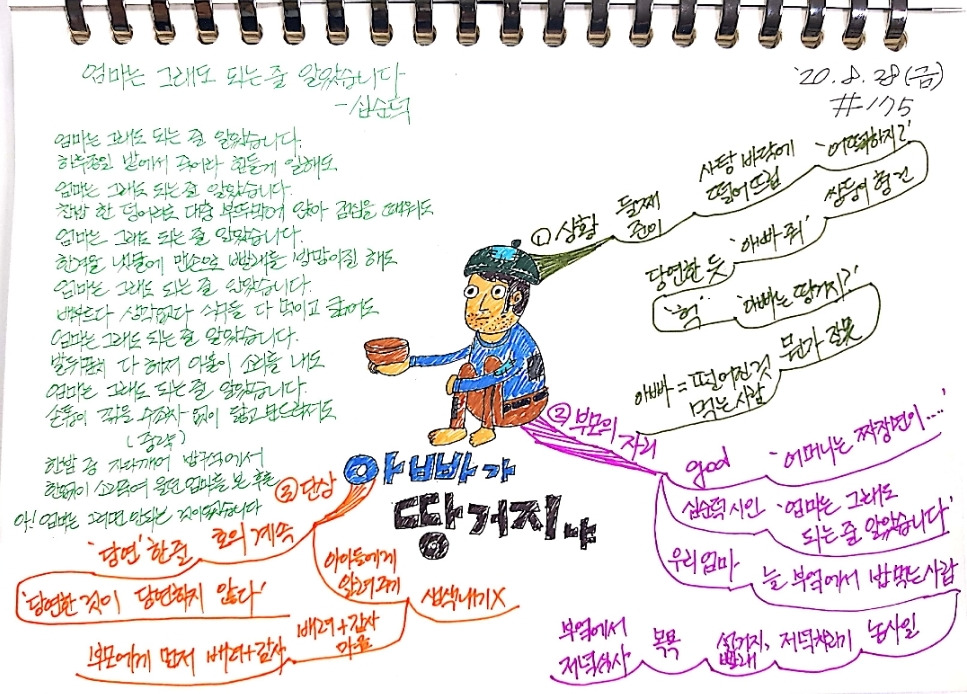 엄마는 그래도 되는 줄 알았습니다
-심순덕
'20. 8. 28 (금)
#175
엄마는 그래도 되는 줄 알았습니다.
하루종일 밭에서 죽어라 힘들게 일해도
엄마는 그래도 되는 줄 알았습니다.
찬밥 한 덩이로 대충 부뚜막에 앉아 점심을 때워도
엄마는 그래도 되는 줄 알았습니다.
한겨울 냇물에 맨손으로 빨래를 방망이질 해도
엄마는 그래도 되는 줄 알았습니다.
배부르다 생각없다 식구들 다 먹이고 굶어도
엄마는 그래도 되는 줄 알았습니다.
발뒤꿈치 다 헤져 이불이 소리를 내도
엄마는 그래도 되는 줄 알았습니다.
손톱이 깎을 수조차 없이 닳고 문드러져도
(중략)
한밤 중 자다깨어 방구석에서
한없이 소리죽여 울던 엄마를 본 후론
아! 엄마는 그러면 안되는 것이었습니다
① 상황
둘째
준이
사탕 바닥에
떨어뜨림
'어떡하지?'
쌍둥이 형 건
'아빠 줘'
당연한 듯
'헉'
'아빠는 땅거지?'
뭔가 잘못
아빠 = 떨어진 것
먹는 사람
② 부모의 자리
good
'어머니는 짜장면이....'
심순덕 시인
'엄마는 그래도
되는 줄 알았습니다'
우리 엄마
늘 부엌에서 밥먹는 사람
농사일
저녁차리기
설거지,
빨래
목욕
부엌에서
저녁식사
아빠가
땅거지야
③ 단상
호의 계속
'당연'한 줄
'당연한 것이 당연하지 않다'
아이들에게
알려주기
생색내기X
배려+감사
마음
부모에게 먼저 배려+감사